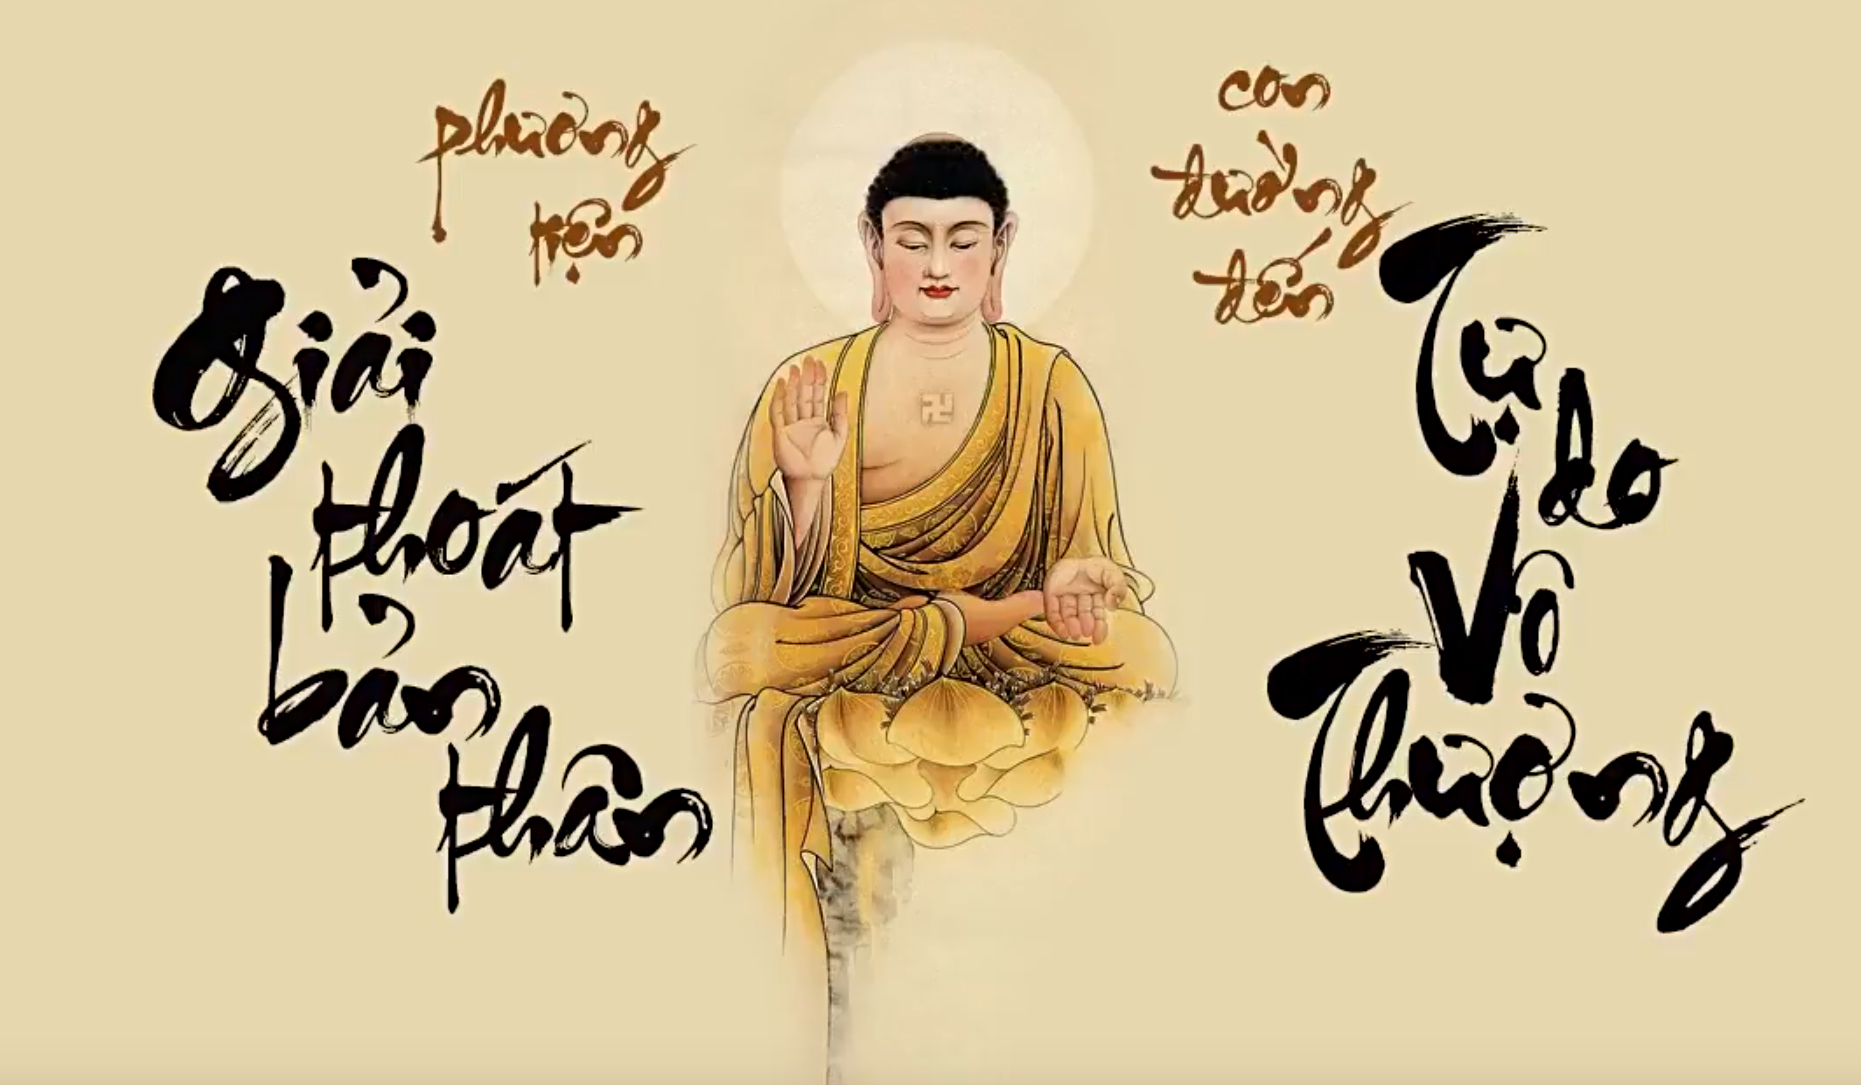 phương
tiện
giải
thoát
bản
thân
con
đường
đến
Tự
do
Vô
Thượng
卍